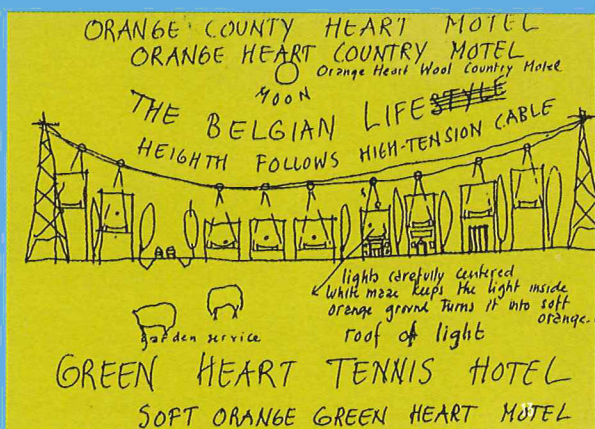 ORANGE COUNTY HEART MOTEL
ORANGE HEART COUNTRY MOTEL
Orange Heart Wool Country Motel
MOON
THE BELGIAN LIFE STYLE
HEIGHTH FOLLOWS HIGH-TENSION CABLE
lights carefully centered
white maze keeps the light inside
orange ground Turns it into soft
orange.
roof of light
garden service
GREEN HEART TENNIS HOTEL
SOFT ORANGE GREEN HEART MOTEL